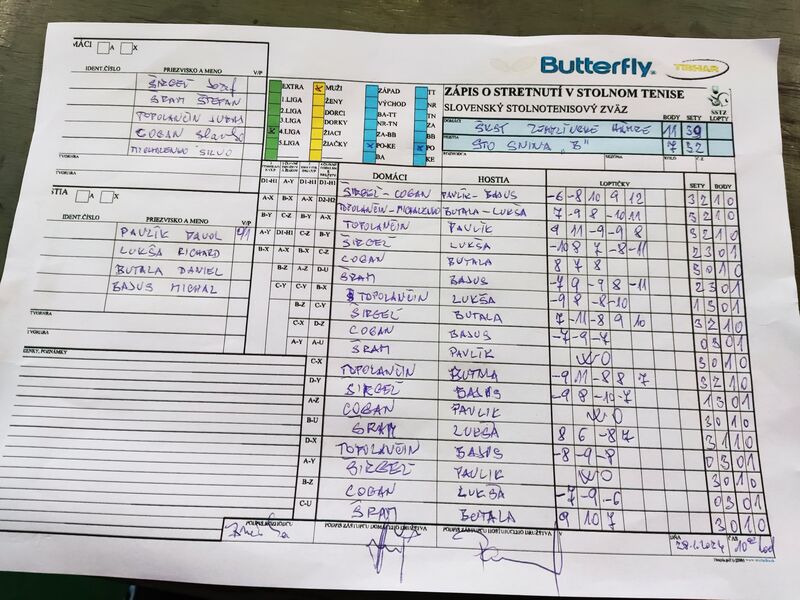 Butterfly TIBHAR
DOMÁCI A X
IDENT.ČÍSLO PRIEZVISKO A MENO V/P
ŠIRGEĽ Jozef
ŠRAM ŠTEFAN
TOPOLANČIN LUKAS
COGAN Slavko
MICHALENKO SILVO
TVORURA
EXTRA
1.LIGA
2.LIGA
3.LIGA
X 4.LIGA
5.LIGA
X MUŽI
ŽENY
DORCI
DORKY
ŽIACI
ŽIAČKY
ZÁPAD
VÝCHOD
BA-TT
NR-TN
ZA-BB
X PO-KE
BA
TT
NR
TN
ZA
BB
X PO
KE
ZÁPIS O STRETNUTÍ V STOLNOM TENISE
SLOVENSKÝ STOLNOTENISOVÝ ZVÄZ
SSTZ
BODY SETY LOPTY
DOMÁCI ŠKST ZEMPLÍNSKE HÁMRE 11 39
HOSTIA STO SNINA "B" 7 32
ROZHODCA SEZÓNA KOLO Č.Z.
HOSTIA A X
IDENT.ČÍSLO PRIEZVISKO A MENO V/P
PAVLÍK PAVOL
LUKŠA RICHARD
BUTALA DANIEL
BAJUS MICHAL
TVORURA
TVORURA
DOMÁCI HOSTIA LOPTIČKY SETY BODY
ŠIRGEĽ - COGAN PAVLÍK - BAJUS -6 -8 10 9 12 3 2 1 0
TOPOLANČIN - MICHALENKO BUTALA - LUKŠA 7 -9 8 -10 11 3 2 1 0
TOPOLANČIN PAVLÍK 9 11 -9 -9 8 3 2 1 0
ŠIRGEĽ LUKŠA -10 8 7 -8 -11 2 3 0 1
COGAN BUTALA 8 7 8 3 0 1 0
ŠRAM BAJUS -7 9 -9 8 -11 2 3 0 1
TOPOLANČIN LUKŠA -9 8 -8 -10 1 3 0 1
ŠIRGEĽ BUTALA 7 -11 -8 9 10 3 2 1 0
COGAN BAJUS -7 -9 -7 0 3 0 1
ŠRAM PAVLÍK WO 3 0 1 0
TOPOLANČIN BUTALA -9 11 -8 8 7 3 2 1 0
ŠIRGEĽ BAJUS -9 8 -10 -7 1 3 0 1
COGAN PAVLÍK WO 3 0 1 0
ŠRAM LUKŠA 8 6 -8 7 3 1 1 0
TOPOLANČIN BAJUS -8 -9 -8 0 3 0 1
ŠIRGEĽ PAVLÍK WO 3 0 1 0
COGAN LUKŠA -7 -9 -6 0 3 0 1
ŠRAM BUTALA 9 10 7 3 0 1 0
D1-H1 A-Y D1-H1 D1-H1
A-X B-X A-X D2-H2
B-Y C-Z B-Y
A-Y D1-H1 C-Z B-Y
B-X A-X B-X C-Z
B-Z A-Z D-U
C-Y C-Y B-X
B-Z C-Y
C-X D-Z
A-Y A-U
C-X
D-Y
A-Z
B-U
D-X
A-Y
B-Z
C-U
PODPIS ZÁSTUPCU DOMÁCEHO DRUŽSTVA
DÁTUM ČAS